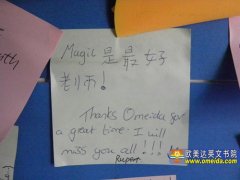 Magil 是最好
老师!
Thanks Omeida for
a great time. I will
miss you all!!!
Rupert
欧美达英文书院
www.omeida.com